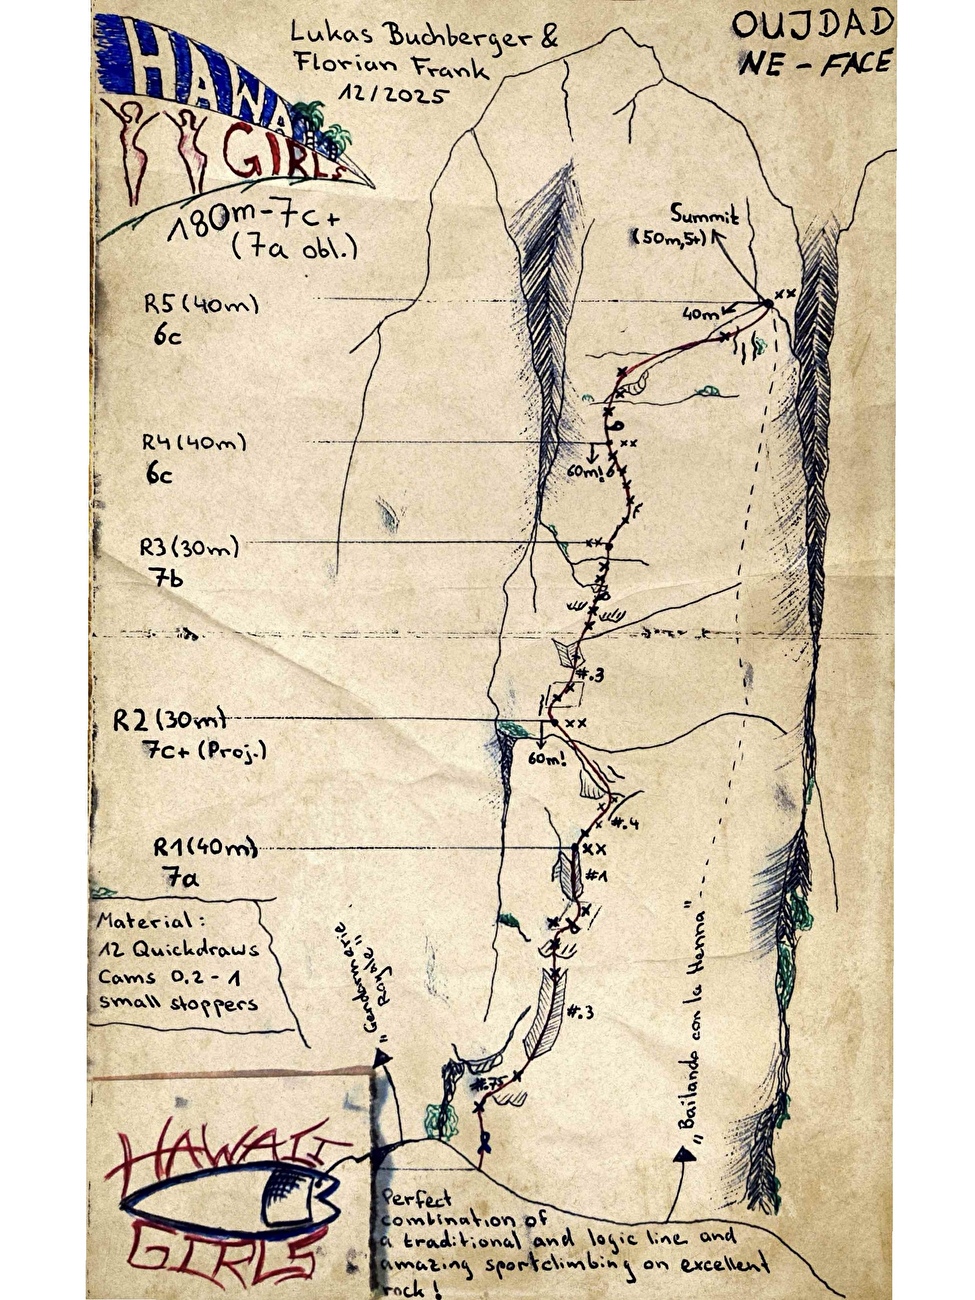 HAWAII
GIRLS
Lukas Buchberger &
Florian Frank
12/2025
OUJDAD
NE-FACE
180m-7c+
(7a obl.)
Summit
(50m,5+)
R5 (40m)
6c
xx
40m
R4 (40m)
6c
xx
60m!
R3 (30m)
7b
xx
#.3
R2 (30m)
7c+ (Proj.)
xx
60m!
#.4
R1 (40m)
7a
xx
#1
Material:
12 Quickdraws
Cams 0.2 - 1
small stoppers
"Gendarmerie
Royale"
"Bailando con la Henna"
#.3
#.75
HAWAII
GIRLS
Perfect
combination of
a traditional and logic line and
amazing sportclimbing on excellent
rock!